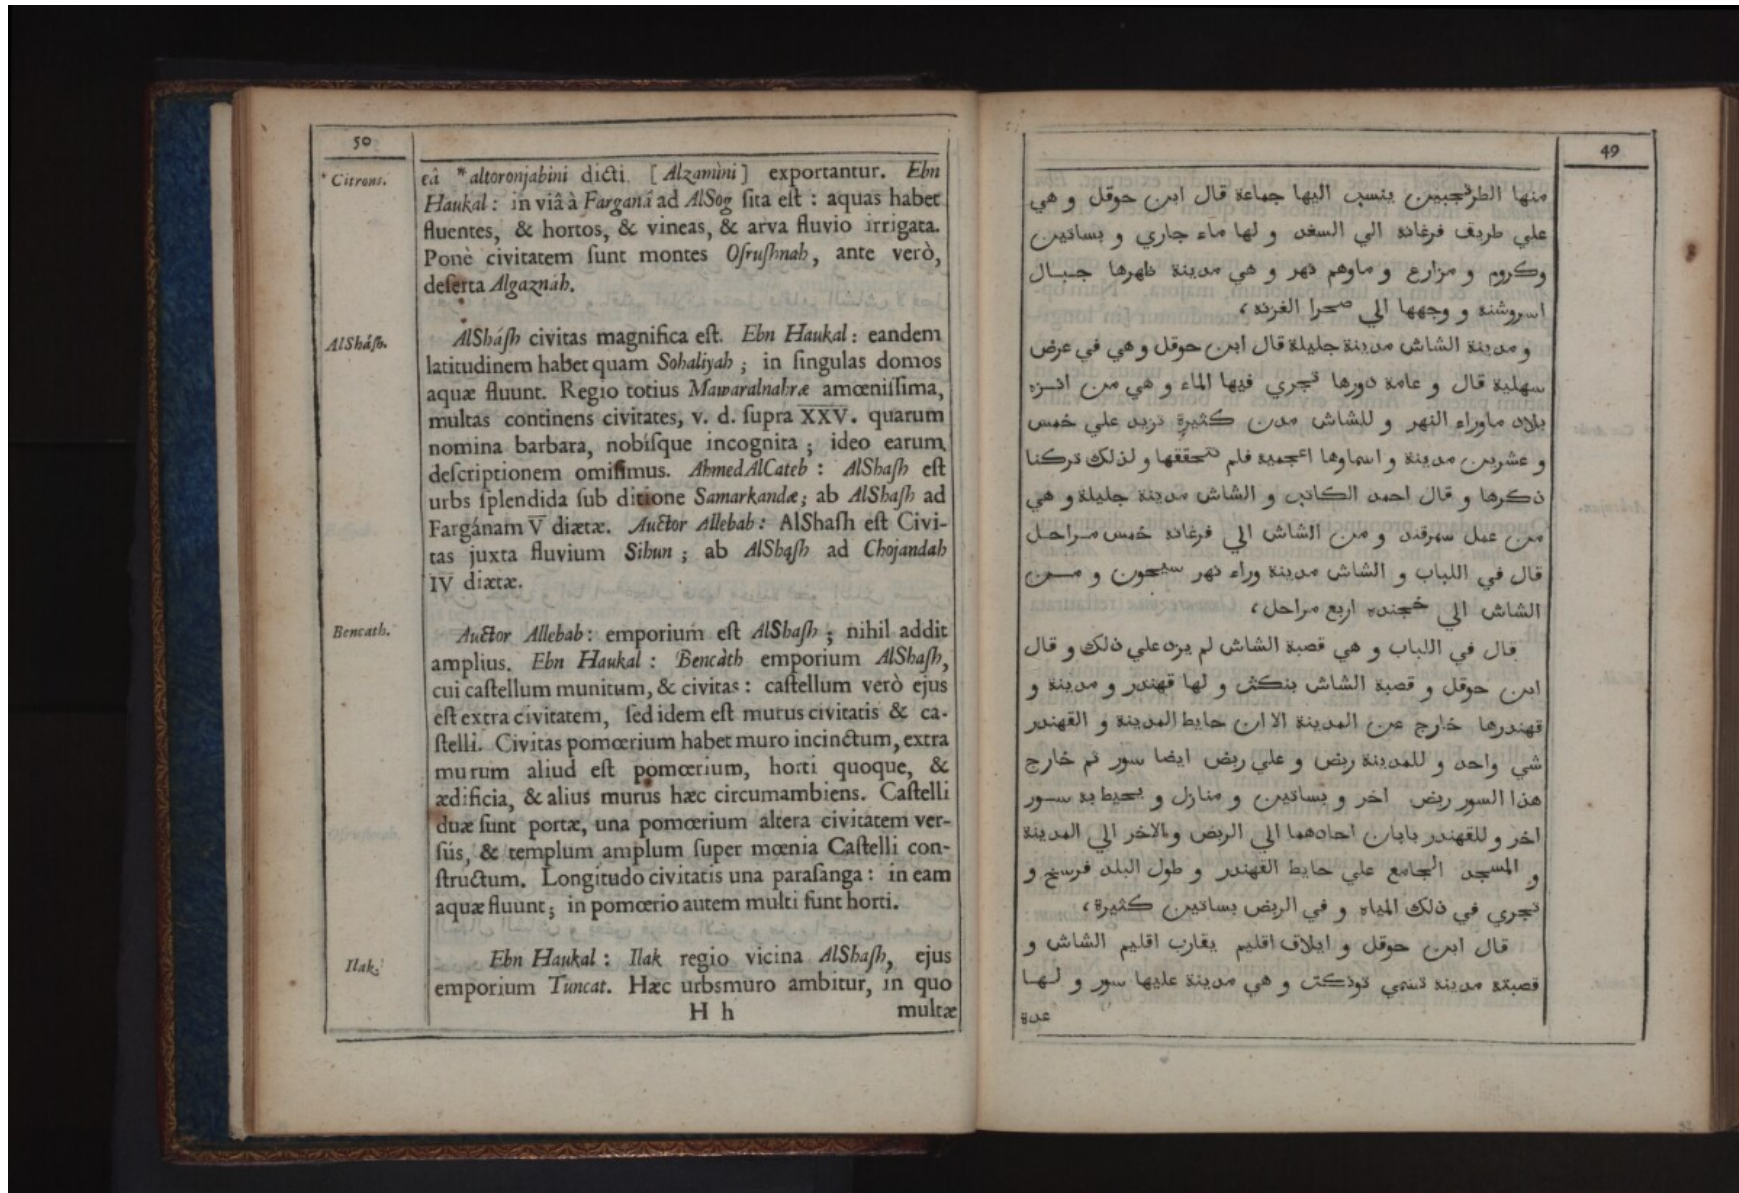 50
* Citrons.
eâ * altoronjabini dicti. [Alzamìni] exportantur. Ebn
Haukal: in viâ à Farganâ ad AlSog sita est: aquas habet
fluentes, & hortos, & vineas, & arva fluvio irrigata.
Ponè civitatem sunt montes Osrushnah, ante verò,
deserta Algaznáh.
AlShâsh.
AlShásh civitas magnifica est. Ebn Haukal: eandem
latitudinem habet quam Sohaliyah; in singulas domos
aquæ fluunt. Regio totius Mawaralnahræ amœnissima,
multas continens civitates, v. d. supra XXV. quarum
nomina barbara, nobísque incognita; ideo earum
descriptionem omisimus. AhmedAlCateb: AlShash est
urbs splendida sub ditione Samarkandæ; ab AlShash ad
Fargánam V diætæ. Auctor Allebab: AlShash est Civi-
tas juxta fluvium Sihun; ab AlShash ad Chojandah
IV diætæ.
Bencath.
Auctor Allebab: emporium est AlShash; nihil addit
amplius. Ebn Haukal: Bencàth emporium AlShash,
cui castellum munitum, & civitas: castellum verò ejus
est extra civitatem, sed idem est murus civitatis & ca-
stelli. Civitas pomœrium habet muro incinctum, extra
murum aliud est pomœrium, horti quoque, &
ædificia, & alius murus hæc circumambiens. Castelli
duæ sunt portæ, una pomœrium altera civitatem ver-
sùs, & templum amplum super mœnia Castelli con-
structum. Longitudo civitatis una parasanga: in eam
aquæ fluunt; in pomœrio autem multi sunt horti.
Ilak.
Ebn Haukal: Ilak regio vicina AlShash, ejus
emporium Tuncat. Hæc urbsmuro ambitur, in quo
H h multæ
49
منها الطرنجبين ينسب اليها جماعة قال ابن حوقل و هي
علي طريف فرغانة الي السغد و لها ماء جاري و بساتين
وكروم و مزارع و ماوهم نهر و هي مدينة ظهرها جبال
اسروشنة و وجهها الي صحرا الغزنة،
و مدينة الشاش مدينة جليلة قال ابن حوقل و هي في عرض
سهلية قال و عامة دورها تجري فيها الماء و هي من انزه
بلاد ماوراء النهر و للشاش مدن كثيرة تزيد علي خمس
و عشرين مدينة و اسماوها اعجمية فلم نتحققها و لذلك تركنا
ذكرها و قال احمد الكاتب و الشاش مدينة جليلة و هي
من عمل سمرقند و من الشاش الي فرغانة خمس مراحل
قال في اللباب و الشاش مدينة وراء نهر سيحون و من
الشاش الي خجنده اربع مراحل،
قال في اللباب و هي قصبة الشاش لم يزد علي ذلك و قال
ابن حوقل و قصبة الشاش بنكث و لها قهندر و مدينة و
قهندرها خارج عن المدينة الا ان حايط المدينة و القهندر
شي واحد و للمدينة ربض و علي ربض ايضا سور ثم خارج
هذا السور ربض اخر و بساتين و منازل و يحيط به سور
اخر و للقهندر بابان احداهما الي الربض والاخر الي المدينة
و المسجد الجامع علي حايط القهندر و طول البلد فرسخ و
تجري في ذلك المياه و في الربض بساتين كثيرة،
قال ابن حوقل و ايلاق اقليم يقارب اقليم الشاش و
قصبتة مدينة تسمي تونكت و هي مدينة عليها سور و لها
عدة